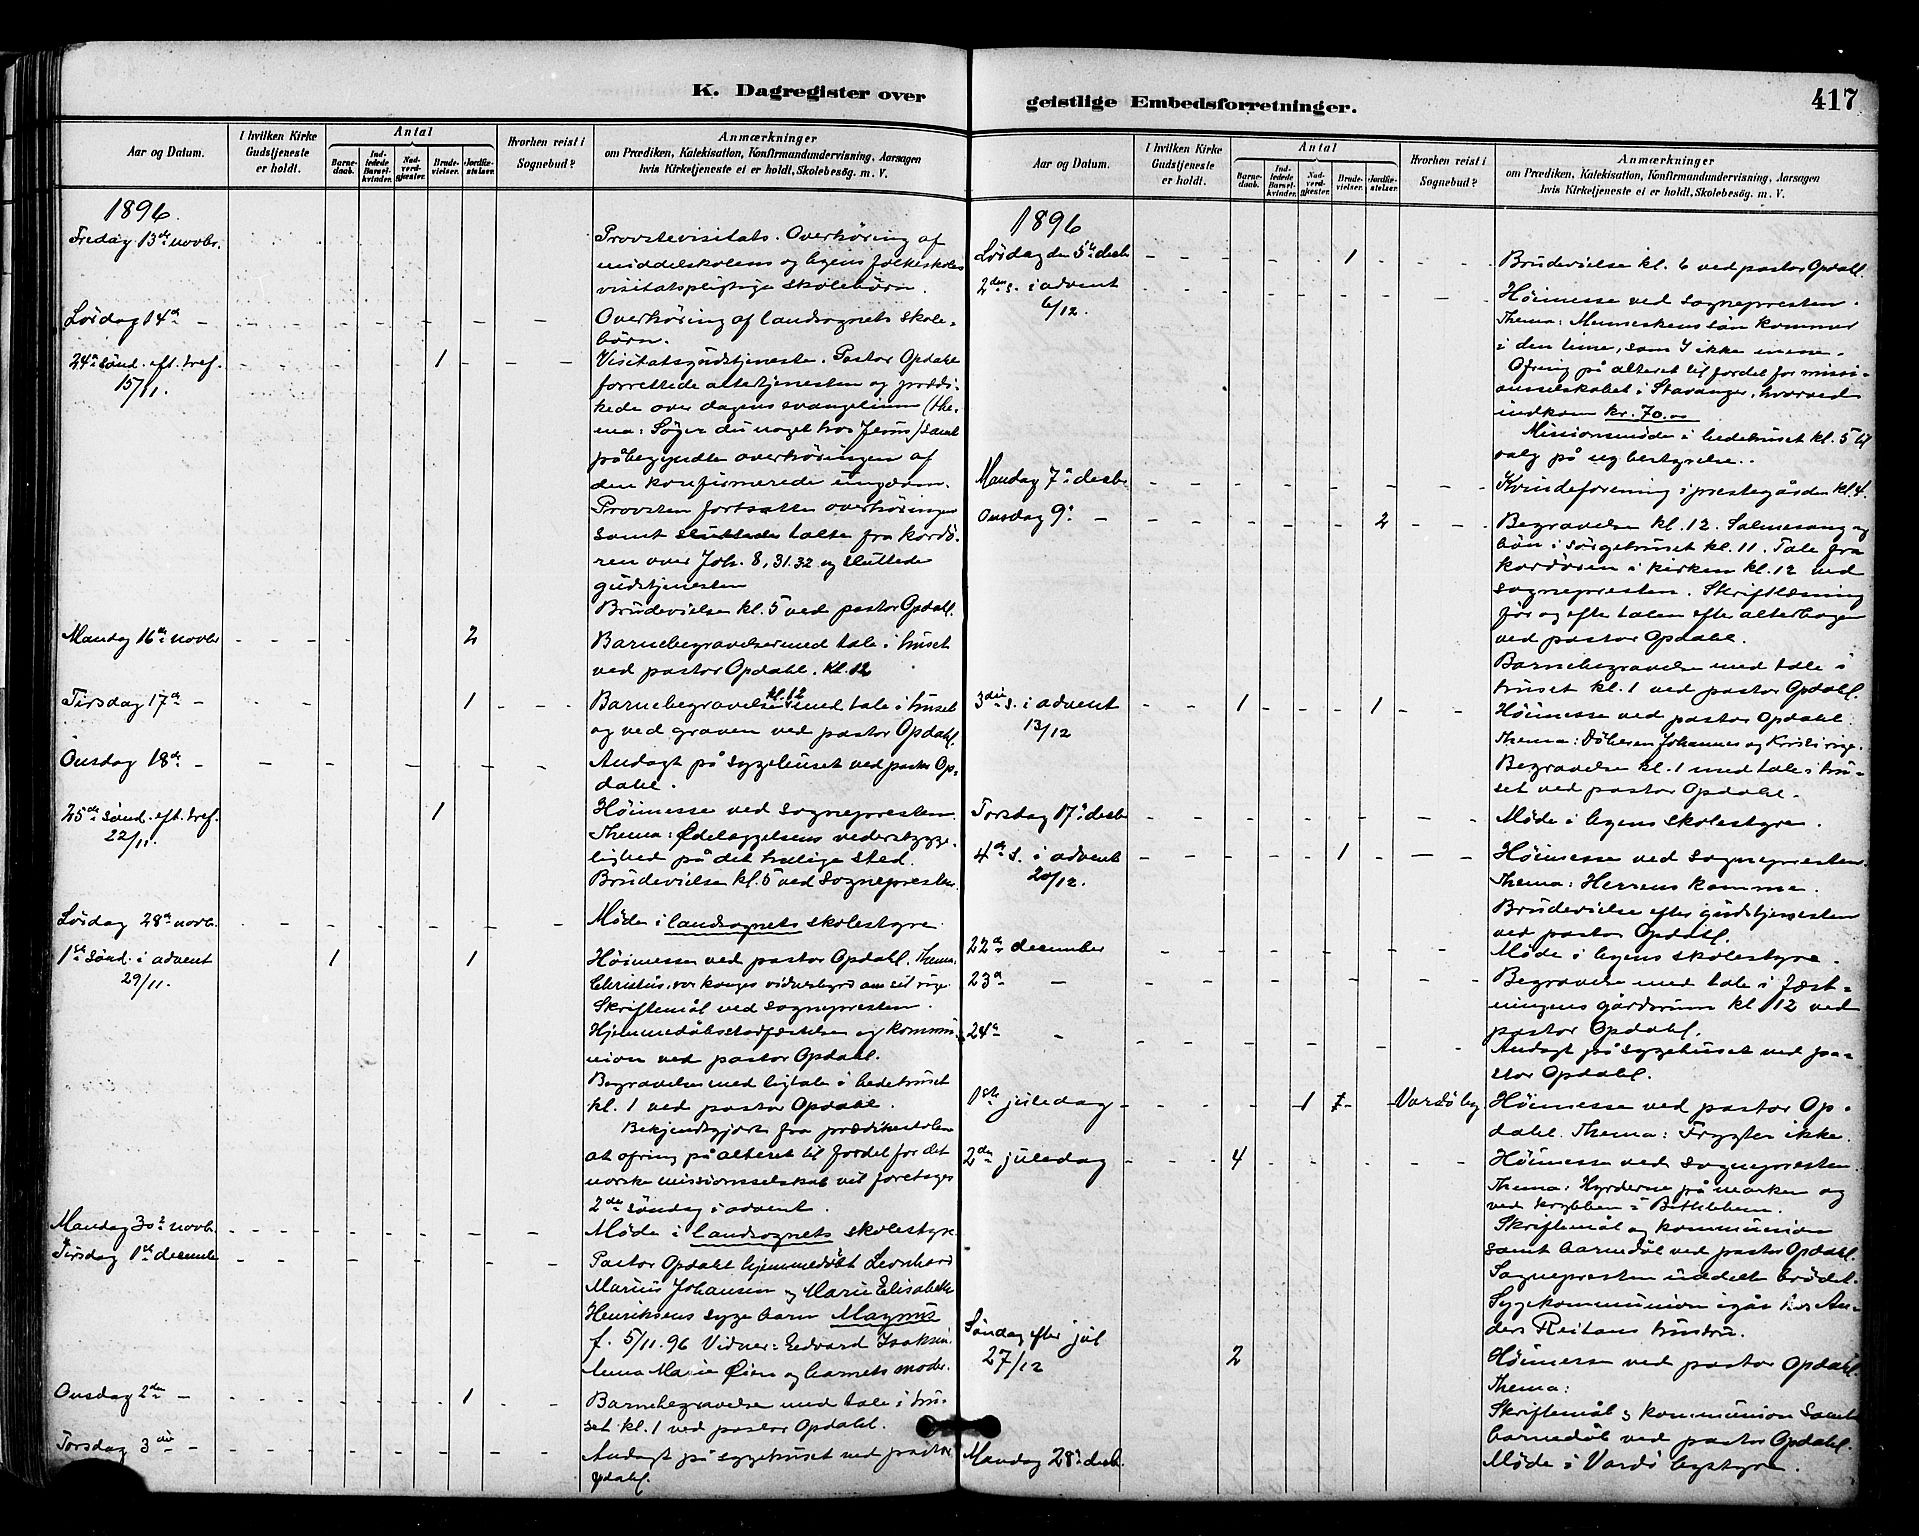 K. Dagregister over
geistlige Embedsforretninger.
417
Aar og Datum.
I hvilken Kirke
Gudstjeneste
er holdt.
Antal
Barne-
daab.
Ind-
ledede
Barsel-
kvinder.
Nad-
verd-
gjæster.
Brude-
vielser.
Jordfæ-
stelser.
Hvorhen reist i
Sognebud?
Anmærkninger
om Prædiken, Katekisation, Konfirmandundervisning, Aarsagen
hvis Kirketjeneste ei er holdt, Skolebesøg. m. V.
1896.
Fredag 13de novbr.
Provstevisitats. Overhøring af
middelskolens og byens folkeskoles
visitatspligtige skolebørn.
Lørdag 14de -
Overhøring af landsognets skole-
børn.
24de sønd. eft. tref.
15/11.
1
Visitatsgudstjeneste. Pastor Opdahl
forrettede altertjenesten og prædi-
kede over dagens evangelium (the-
ma: Søger du noget hos Jesus) samt
påbegyndte overhøringen af
den konfirmerede ungdom.
Provsten fortsatte overhøringen
samt sluttede talte fra kordø-
ren over Joh. 8, 31.32 og sluttede
gudstjenesten
Brudevielse kl. 5 ved pastor Opdahl.
Mandag 16de novbr
2
Barnebegravelser med tale i huset
ved pastor Opdahl. kl. 12
Tirsdag 17de -
1
Barnebegravelse kl. 12 med tale i huset
og ved graven ved pastor Opdahl.
Onsdag 18de -
Andagt på sygehuset ved pastor Op-
dahl.
25de sønd. eft. tref.
22/11.
1
Høimesse ved sognepresten.
Thema: Ødelæggelsens vederstygge-
lighed på det hellige sted.
Brudevielse kl. 5 ved sognepresten.
Lørdag 28de novb.
Møde i landsognets skolestyre.
1ste sønd. i advent
29/11.
1
1
Høimesse ved pastor Opdahl. Thema:
Christus, vor konges vidnesbyrd om sit rige.
Skriftemål ved sognepresten.
Hjemmedåbsstadfæstelse og kommu-
nion ved pastor Opdahl.
Begravelse med ligtale i bedehuset
kl. 1 ved pastor Opdahl.
Bekjendtgjort fra prædikestolen
at ofring på alteret til fordel for det
norske missionsselskab vil foretages
2den søndag i advent.
Mandag 30te novb.
Møde i landsognets skolestyre.
Tirsdag 1ste decembr
Pastor Opdahl hjemmedøbt Leonhard
Marius Johansen og Marie Elisabeth
Henriksens syge barn Magnus
f. 5/11.96 Vidner: Edvard Isaksen
Anna Marie Øien og barnets moder.
Onsdag 2den -
1
Barnebegravelse med tale i hu-
set kl. 1 ved pastor Opdahl.
Torsdag 3die -
Andagt på sygehuset ved pastor
Opdahl.
Aar og Datum.
I hvilken Kirke
Gudstjeneste
er holdt.
Antal
Barne-
daab.
Ind-
ledede
Barsel-
kvinder.
Nad-
verd-
gjester.
Brude-
vielser.
Jordfæ-
stelser.
Hvorhen reist i
Sognebud?
Anmærkninger
om Prædiken, Katekisation, Konfirmandundervisning, Aarsagen
hvis Kirketjeneste ei er holdt, Skolebesøg. m. V.
1896
Lørdag den 5te decbr
1
Brudevielse kl. 6 ved pastor Opdahl.
2den s. i advent
6/12.
Høimesse ved sognepresten.
Thema: Menneskens søn kommer
i den time, som I ikke mene.
Ofring på alteret til fordel for missi-
onsselskabet i Stavanger, hvorved
indkom kr. 70.00
Missionsmøde i bedehuset kl. 5 til
valg på ny bestyrelse.
Mandag 7de decbr
Kvindeforening i prestegården kl. 4.
Onsdag 9de -
2
Begravelse kl. 12. Salmesang og
bøn i sørgehuset kl. 11. Tale fra
kordøren i kirken kl. 12 ved
sognepresten. Skriftlæsning
før og efter talen efter alterbogen
ved pastor Opdahl.
Barnebegravelse med tale i
huset kl. 1 ved pastor Opdahl.
3die s. i advent
13/12
1
1
Høimesse ved pastor Opdahl.
Thema: Døberen Johannes og Kristi rige.
Begravelse kl. 1 med tale i hu-
set ved pastor Opdahl.
Torsdag 17de decbr
Møde i byens skolestyre.
4de s. i advent
20/12.
1
Høimesse ved sognepresten.
Thema: Herrens komme.
Brudevielse efter gudstjenesten
ved pastor Opdahl.
22de december
Møde i byens skolestyre.
23de -
Begravelse med tale i fæst-
ningens gårdsrum kl. 12 ved
pastor Opdahl.
24de -
Andagt på sygehuset ved pa-
stor Opdahl.
1ste juledag
1
Vardø by
Høimesse ved pastor Op-
dahl. Thema: Frygter ikke.
2den juledag
4
Høimesse ved sognepresten.
Thema: Hyrderne på marken og
ved krybben i Bethlehem.
Skriftemål og kommunion
samt barnedåb ved pastor Opdahl.
Sognepresten uddelte brødet.
Sygekommunion igår hos An-
ders Reitans hustru.
Søndag efter jul
27/12
2
Høimesse ved pastor Opdahl.
Thema:
Skriftemål og kommunion samt
barnedåb ved pastor Opdahl.
Mandag 28de decb.
Møde i Vardø bystyre.